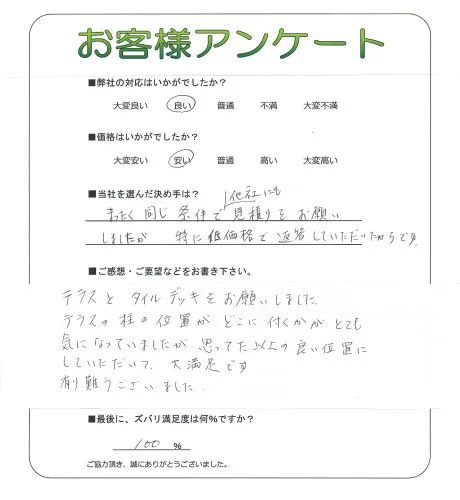 お客様アンケート
■弊社の対応はいかがでしたか？
大変良い 良い 普通 不満 大変不満
■価格はいかがでしたか？
大変安い 安い 普通 高い 大変高い
■当社を選んだ決め手は？
他社にも
まったく同じ条件で見積りをお願い
しましたが 特に低価格で返答していただいたからです
■ご感想・ご要望などをお書き下さい。
テラスと タイルデッキをお願いしました。
テラスの柱の位置が どこに付くかがとても
気になっていましたが 思ってた以上の良い位置に
していただいて、大満足です
有難うございました。
■最後に、ズバリ満足度は何%ですか？
100 %
ご協力頂き、誠にありがとうございました。